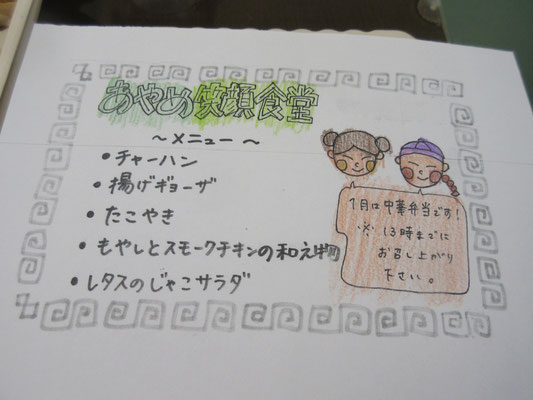 あやめ笑顔食堂
～メニュー～
・チャーハン
・揚げギョーザ
・たこやき
・もやしとスモークチキンの和え物
・レタスのじゃこサラダ
1月は中華弁当です!
※13時までに
お召し上がり
下さい。